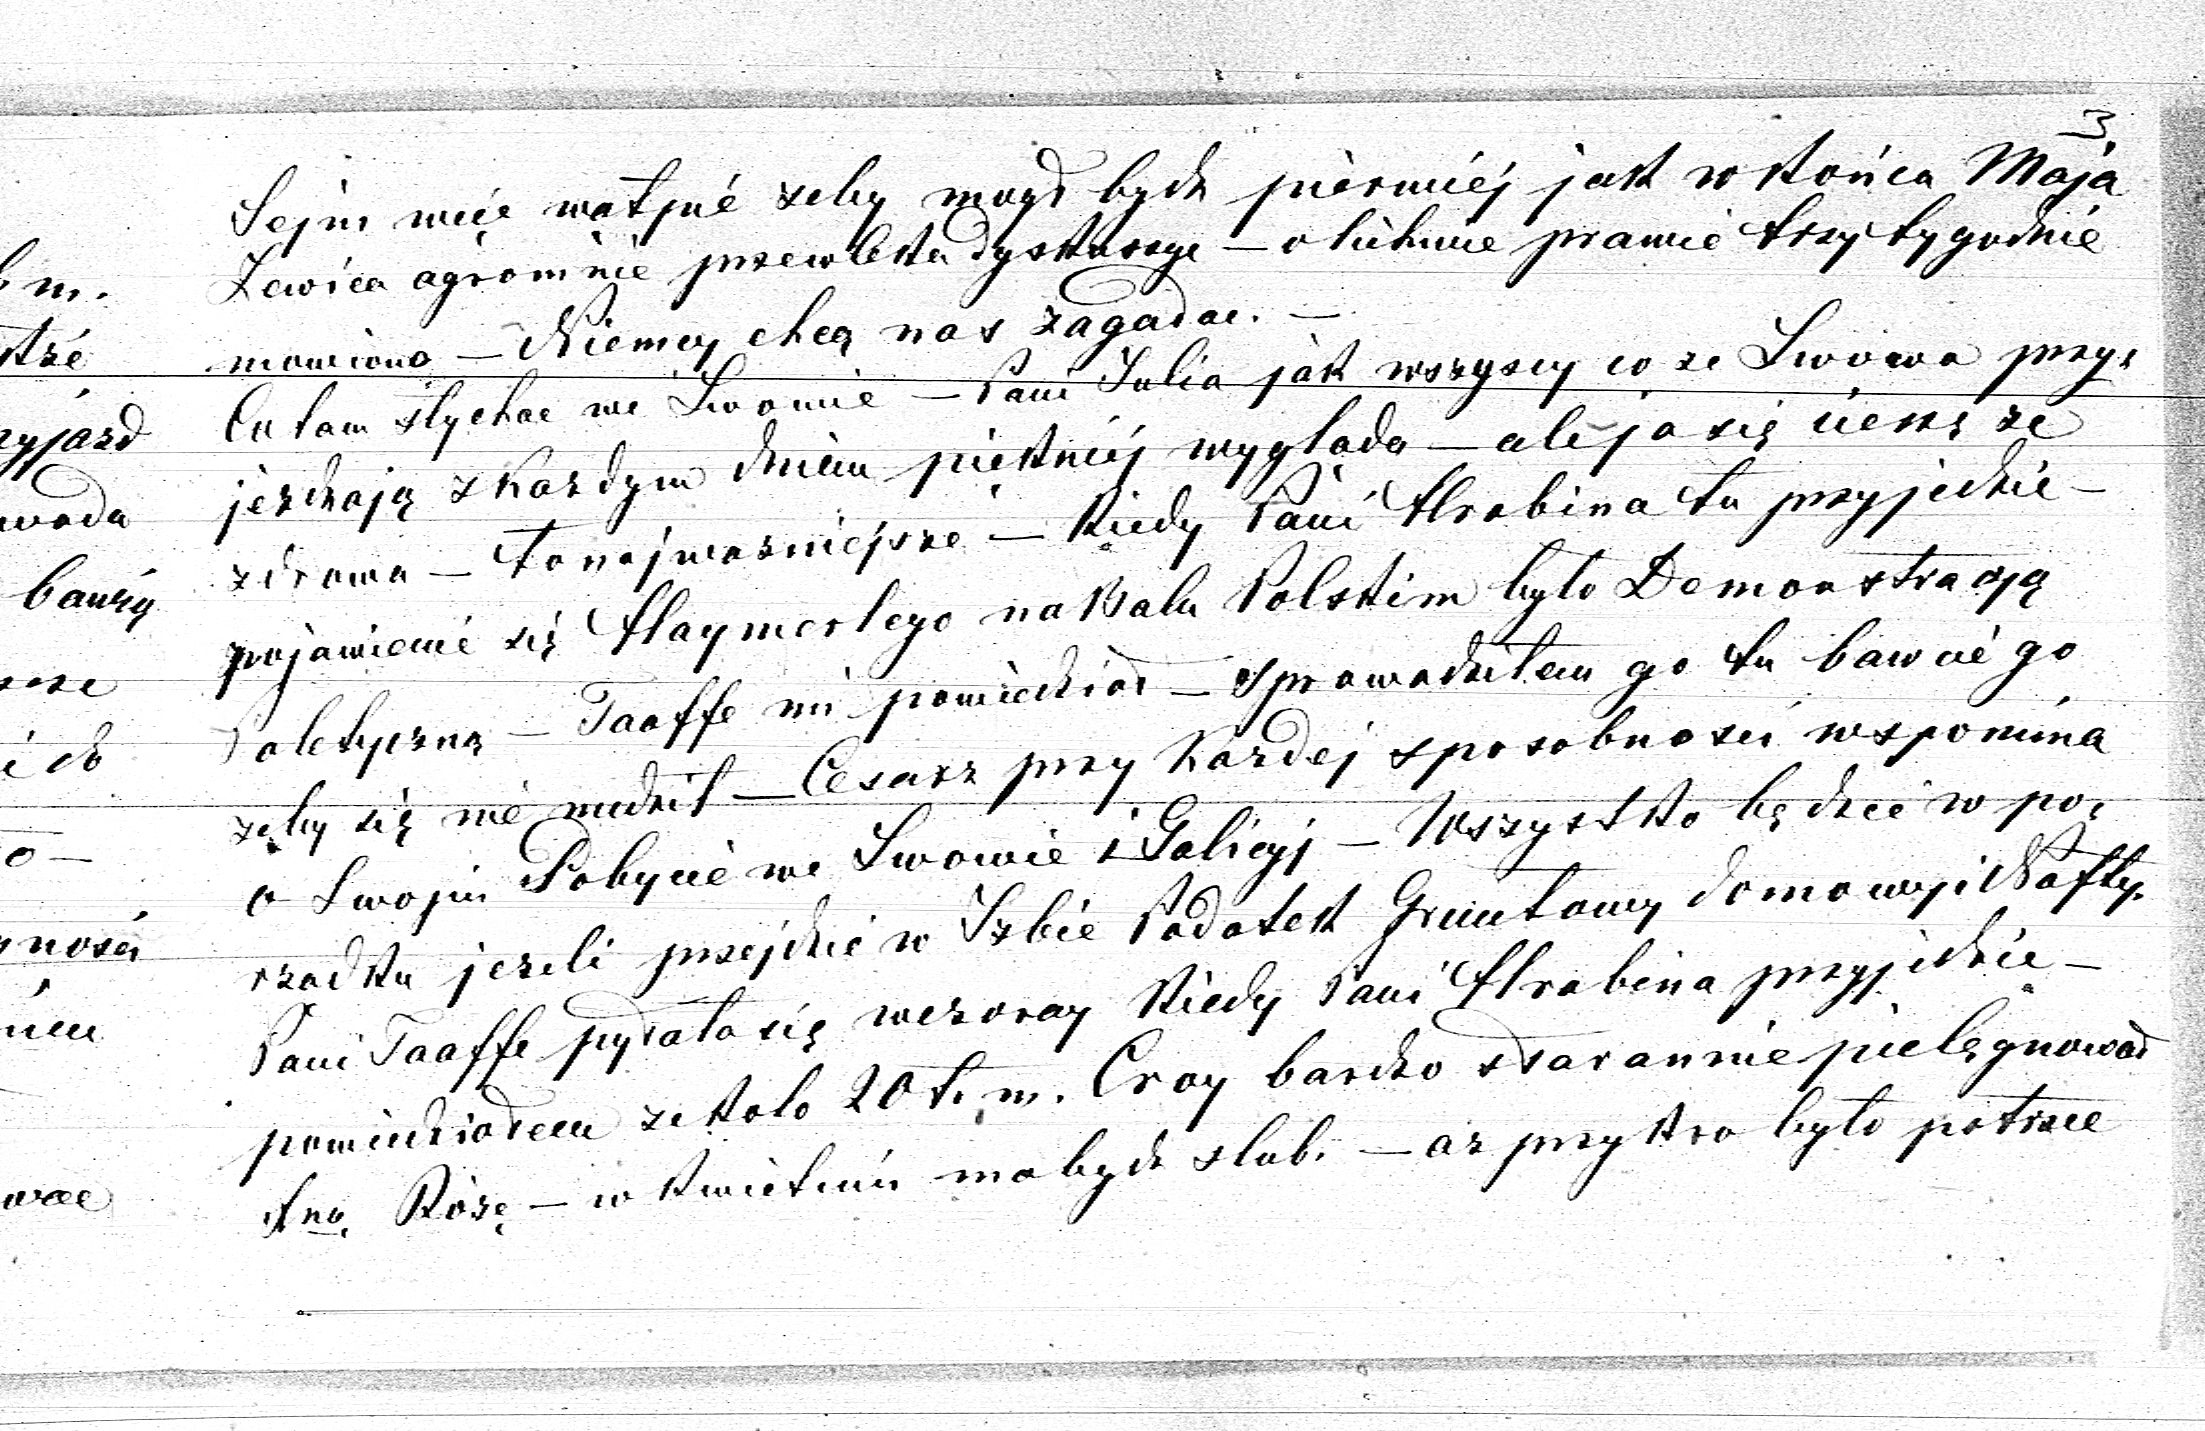 3
Sejm więc wątpię zeby mogł bydz pierwiéj jak w końcu Maja
Lewica agromnie przewleka dyskusye — o lichwie prawie trzy tygodnie
mowiono — Niemcy chcą nas zagadac. —
Co tam słychac we Lwowie — Pani Julia jak wszyscy co ze Lwowa przy-
jezdzają z kazdym dniem piekniéj wyglada — ale ja się ciesze ze
zdrowa — to najwazniejsze — Kiedy Pani Hrabina tu przyjedzie —
pojawienié się Haymerlego na Balu Polskim było Demonstracyą
Poletyczną — Taaffe mi powiedział — sprowadziłem go tu bawcie go
zeby się nie nudził — Cesarz przy kazdej sposobnosci wspomina
o Swojm Pobycie we Lwowie i Galicyj — Wszystko będzie w po-
rzadku jezeli przejdzie w Izbie Podatek Gruntowy domowy i Nafty.
Pani Taaffe pytała się wczoray kiedy Pani Hrabina przyjedzie —
powiedziałem ze koło 20 t. m. Croy bardzo starannie pielęgnował
Rózę — w kwietniu ma bydz slub. — az przykro było patrzec
b m.
yjazd
woda
bawią
nosci
wac